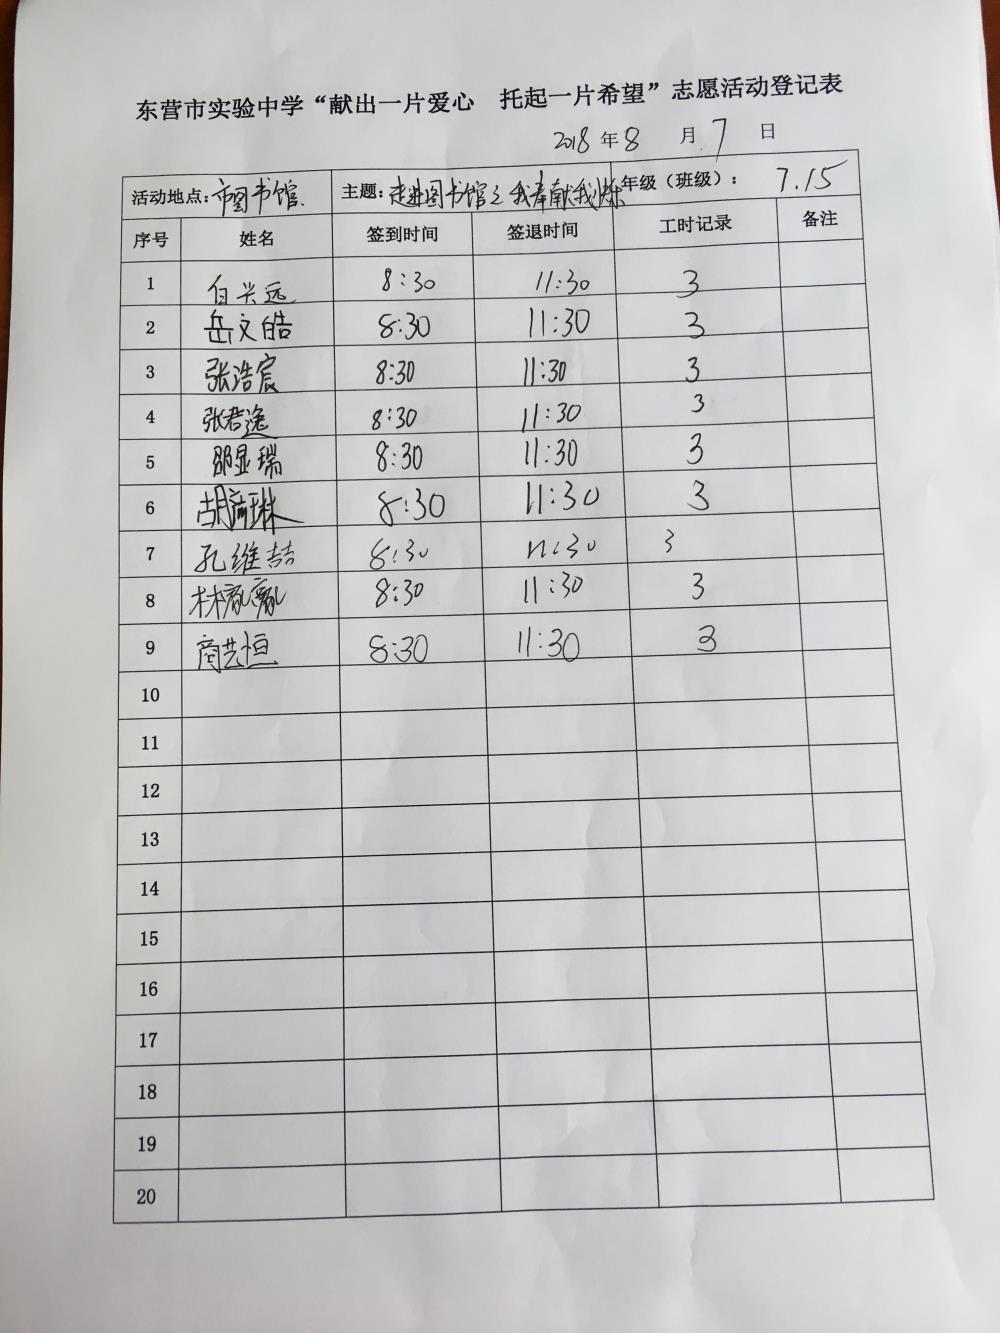 东营市实验中学“献出一片爱心 托起一片希望”志愿活动登记表
2018年8月7日
活动地点：市图书馆. 主题：走进图书馆之我奉献我快乐 年级（班级）： 7.15
序号 姓名 签到时间 签退时间 工时记录 备注
1 白兴远 8:30 11:30 3
2 岳文皓 8:30 11:30 3
3 张浩宸 8:30 11:30 3
4 张君逸 8:30 11:30 3
5 邵显瑞 8:30 11:30 3
6 胡 琳 8:30 11:30 3
7 孔维喆 8:30 11:30 3
8 林 8:30 11:30 3
9 商艺恒 8:30 11:30 3
10
11
12
13
14
15
16
17
18
19
20